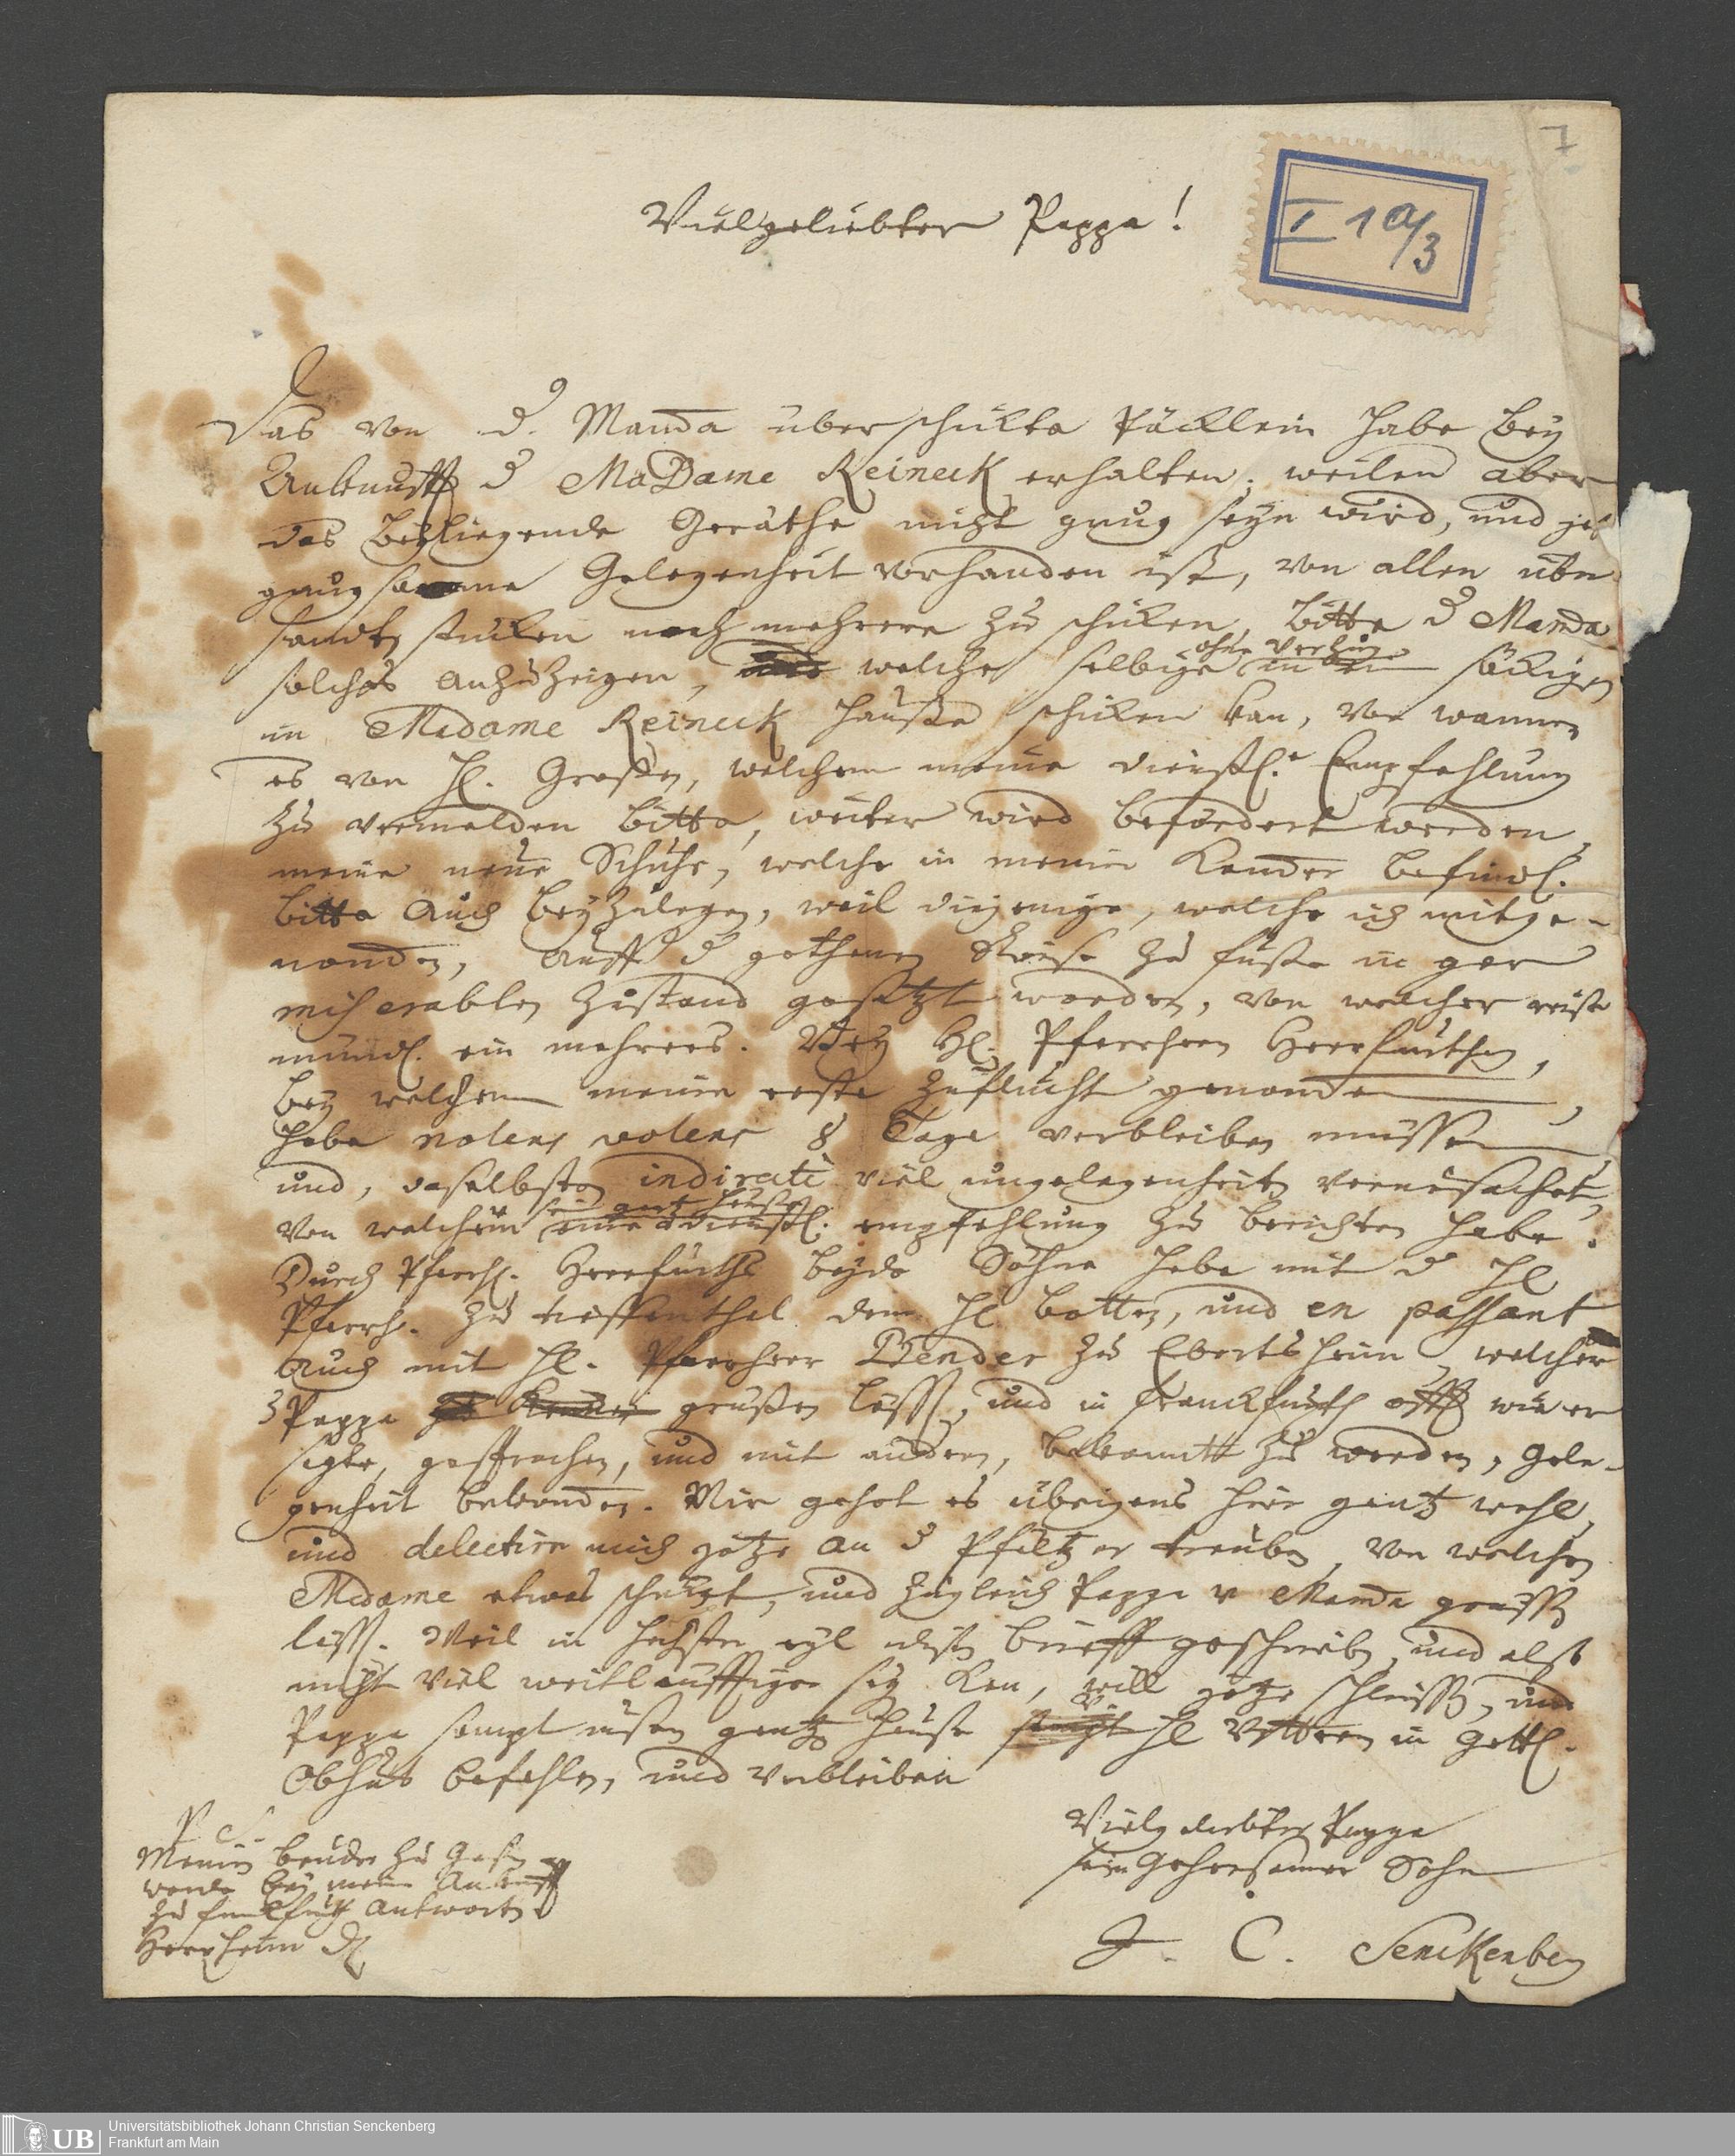 7
I 1 a/3
Vielgeliebter Pappa!
Das von d. Mamа überschickte Päcklein habe bey
Ankunfft d MaDame Reineck erhalten, weilen aber
das beyliegende Geräthe nicht gnug seyn wird, und
gnugsame Gelegenheit vorhanden ist, von allen
stücken noch mehrere zu schicken, bitte d Mama
ohne Verzug
solches anzuzeigen, welche selbige
in Madame Reineck Hauße schicken kan, von wannen
es von H. Großen, welchem meine dienstl. Empfehlung
zu vermelden bitte, weiter wird befördert werden,
meine neue Schuhe, welche in meiner Kammer befindl.
bitte auch beyzulegen, weil diejenige, welche ich mitge-
nommen, auff d gethanen Reise zu fuße in gar
miserablen Zustand gesetzt worden, von welcher reise
mündl. ein mehrers. Bey H. Pfarrherrn Heerfurthen,
bey welchem meine erste Zuflucht genommen
habe nolens volens 8 Tage verbleiben müssen
und, daselbsten indirecte viel ungelegenheit verursachet,
von welchem empfehlung zu berichten habe.
Durch Pfarrh. Heerfurths beyde Söhne habe mit d H.
Pfarrh. zu dem H. und en passant
auch mit H. Pfarrherr Bender zu Ebertsheim, welcher
Pappa grüßen lässt, und in Franckfurth offt wie er
sagte, gesprochen, und mit andern, bekannt zu werden, gele-
genheit bekommen. Mir gehet es übrigens hier gantz wohl,
und delectire mich jetzo an d Pfältzer trauben, von welchen
Madame etwas schickt, und zugleich Pappa u Mama grüssen
lässt. Weil in höchster eyl diesen brieff geschrieben, und also
nicht viel weitläufftiger seyn kan, will jetzo schliessen, und
Pappa sampt unserm gantzen Hause H Vettern in Göttl.
Obhut befehlen, und verbleiben
Vielgeliebter Pappa
sein Gehorsamer Sohn
J. C. Senckenberg
P. S.
Meinem bruder zu
werde bey meiner Ankunfft
zu Franckfurth antworten
Herrheim d
UB
Universitätsbibliothek Johann Christian Senckenberg
Frankfurt am Main